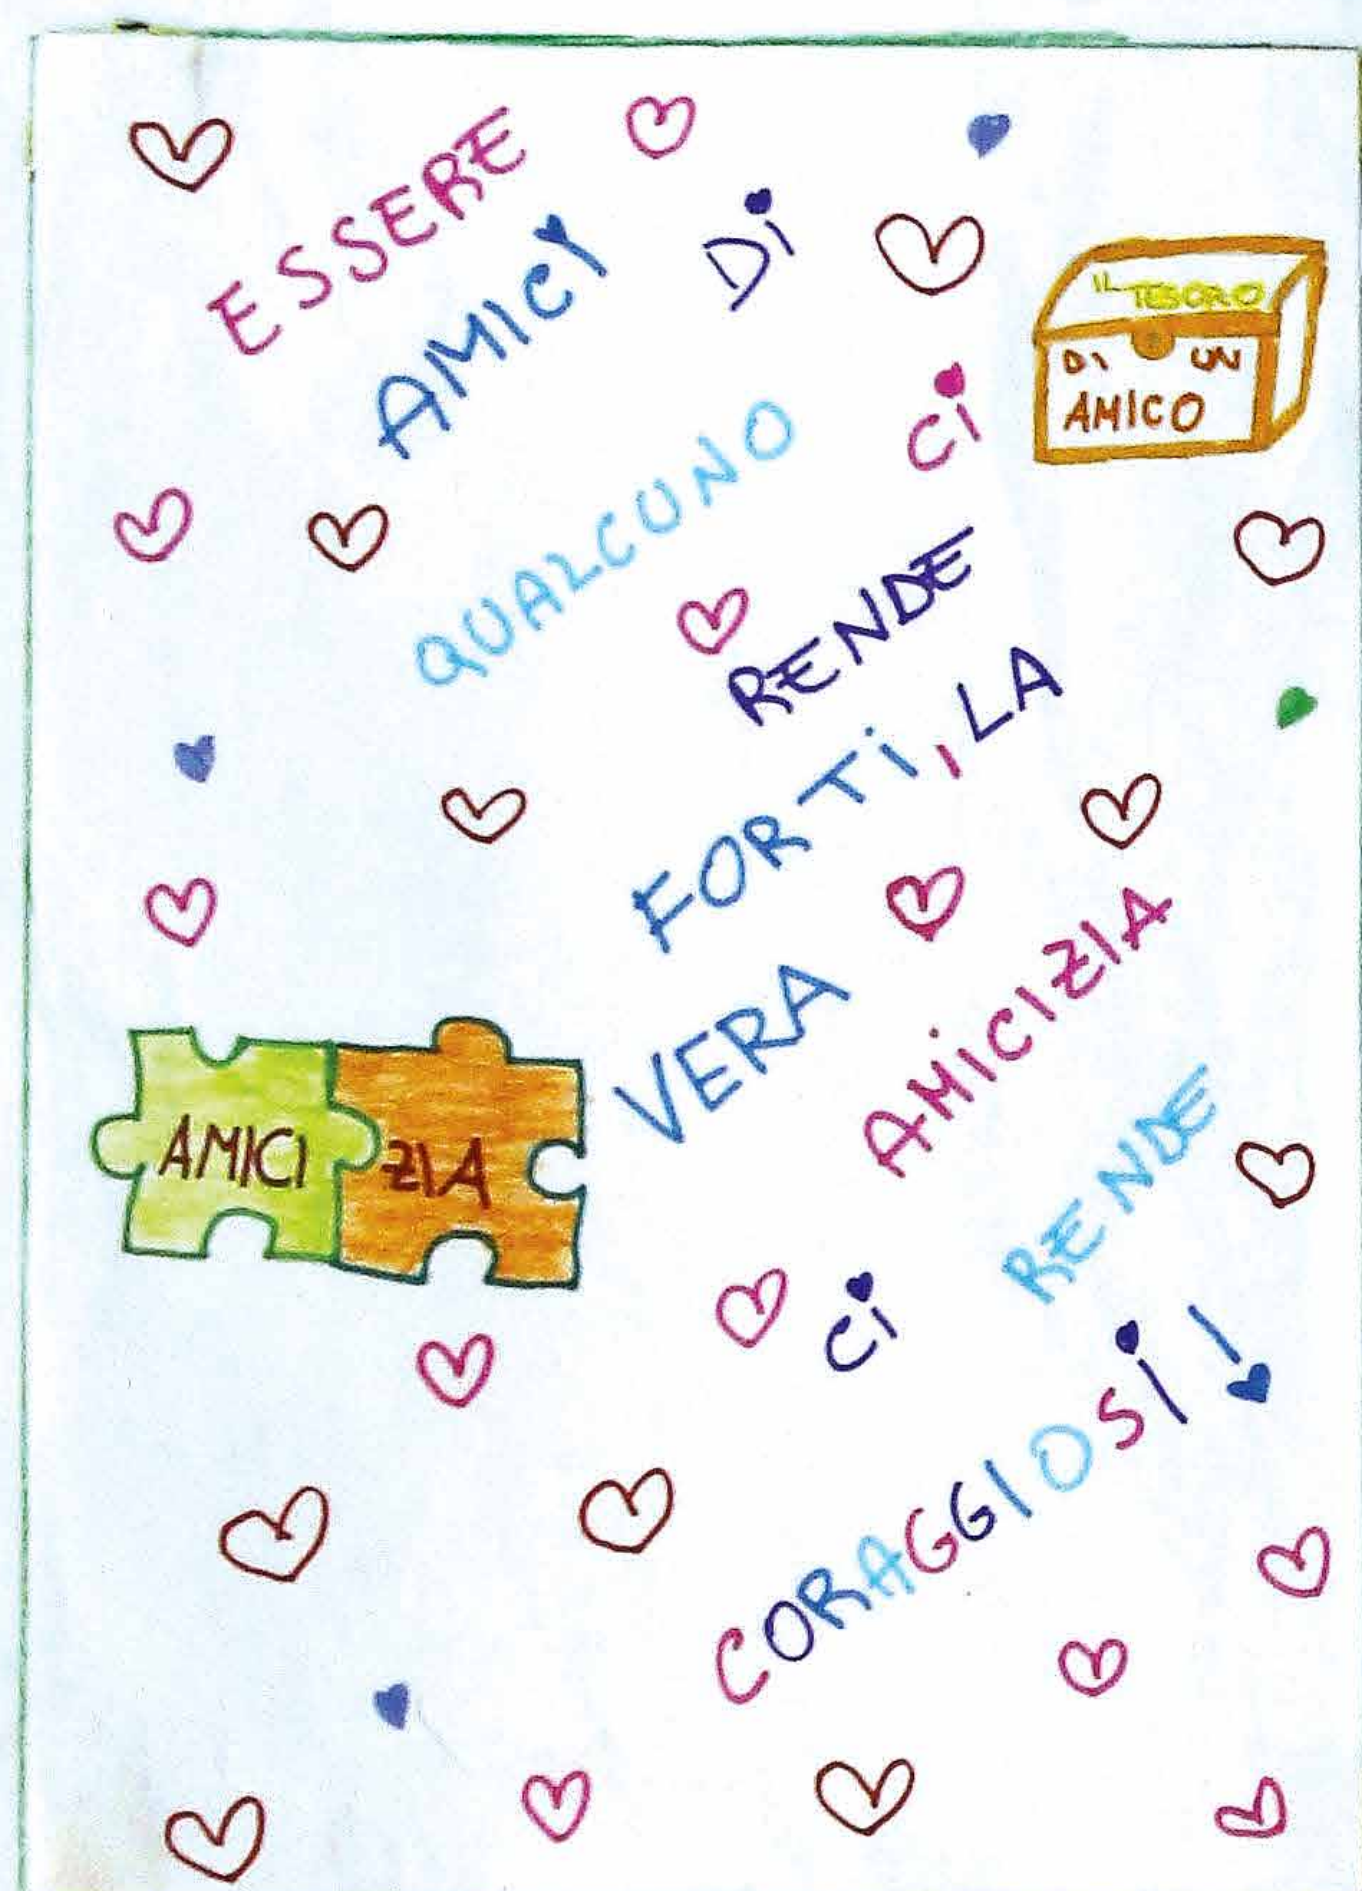 ESSERE
AMICI DI
QUALCUNO CI
RENDE
FORTI, LA
VERA AMICIZIA
CI RENDE
CORAGGIOSI!
IL TESORO
DI UN
AMICO
AMICI ZIA